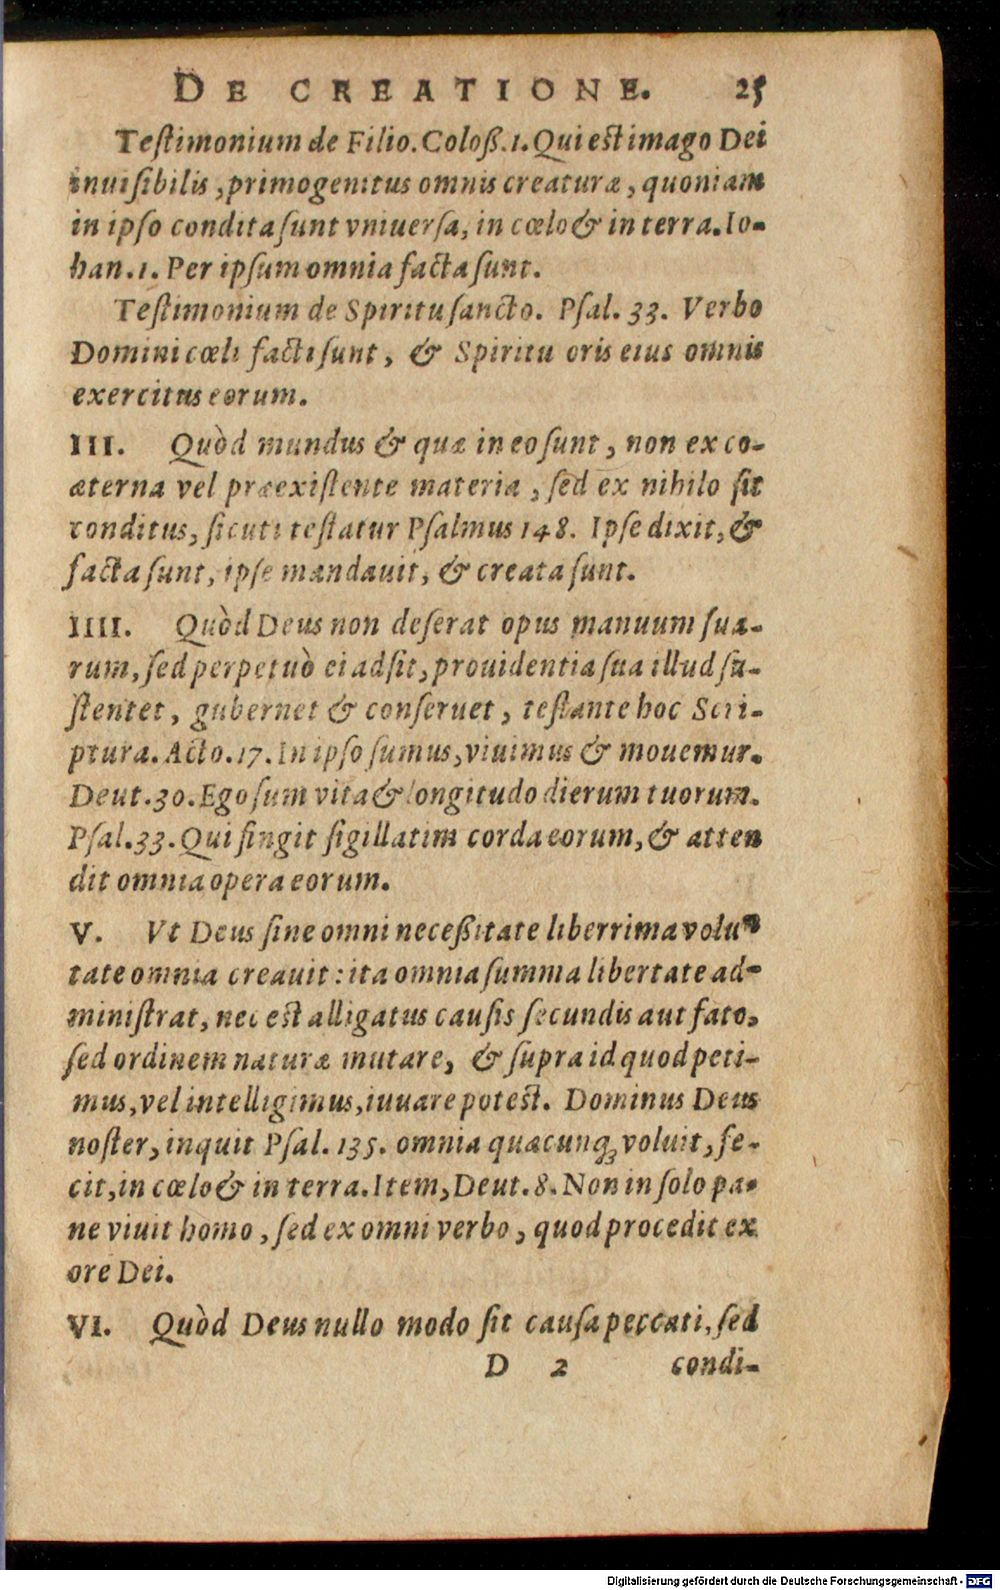 DE CREATIONE. 25
Teſtimonium de Filio. Coloß. 1. Qui eſt imago Dei
inuiſibilis, primogenitus omnis creaturæ, quoniam
in ipſo condita ſunt vniuerſa, in cœlo & in terra. Io-
han. 1. Per ipſum omnia facta ſunt.
Teſtimonium de Spiritu ſancto. Pſal. 33. Verbo
Domini cœli facti ſunt, & Spiritu oris eius omnis
exercitus eorum.
III. Quòd mundus & quæ in eo ſunt, non ex co-
æterna vel præexiſtente materia, ſed ex nihilo ſit
conditus, ſicuti teſtatur Pſalmus 148. Ipſe dixit, &
facta ſunt, ipſe mandauit, & creata ſunt.
IIII. Quòd Deus non deſerat opus manuum ſua-
rum, ſed perpetuò ei adſit, prouidentia ſua illud ſu-
ſtentet, gubernet & conſeruet, teſtante hoc Scri-
ptura. Acto. 17. In ipſo ſumus, viuimus & mouemur.
Deut. 30. Ego ſum vita & longitudo dierum tuorum.
Pſal. 33. Qui fingit ſigillatim corda eorum, & atten
dit omnia opera eorum.
V. Vt Deus ſine omni neceßitate liberrima volu
tate omnia creauit: ita omnia ſumma libertate ad-
miniſtrat, nec eſt alligatus cauſis ſecundis aut fato,
ſed ordinem naturæ mutare, & ſupra id quod peti-
mus, vel intelligimus, iuuare poteſt. Dominus Deus
noſter, inquit Pſal. 135. omnia quæcunq; voluit, fe-
cit, in cœlo & in terra. Item, Deut. 8. Non in ſolo pa-
ne viuit homo, ſed ex omni verbo, quod procedit ex
ore Dei.
VI. Quòd Deus nullo modo ſit cauſa peccati, ſed
D 2 condi-
Digitalisierung gefördert durch die Deutsche Forschungsgemeinschaft - DFG